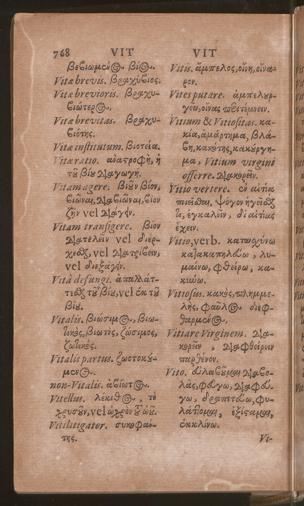 768 VIT VIT
βεβιωμένος. βίος.
Vitæ brevis. βραχύβιος.
Vitæ brevioris. βραχυ-
βιώτερος.
Vitæ brevitas. βραχυ-
βιότης.
Vitæ institutum. βιοτεία.
Vitæ ratio. ἀναστροφή, ἡ
τοῦ βίου διαγωγή.
Vitam agere. βίον
βιῶναι, διαβιῶναι, βίον
ζῆν vel διάγειν.
Vitam transigere. βίον
διατελεῖν vel
vel διατρίβειν,
vel διεξάγειν.
Vitâ defungi. ἀπαλλάτ-
τεσθαι τοῦ βίου, vel ἐκ τοῦ
βίου.
Vitalis. βιώσιμος, βιω-
τικὸς, βιωτὶς, ζώσιμος,
ζωτικὸς.
Vitalis partus. ζωοτοκού-
μενος.
non-Vitalis. ἀβίωτος.
Vitellus. λέκιθος, τὸ
χρυσοῦν, vel ὠχρὸν τοῦ ὠοῦ.
Vitilitigator. συκοφάν-
της.
Vitis. ἄμπελος, οἴνη, οἴνα-
ρον.
Vites putare. ἀμπελουρ-
γεῖν, οἴνας περιτέμνειν.
Vitium & Vitiositas. κα-
κία, ἁμάρτημα, βλά-
βη, κακότης, κακούργη-
μα, Vitium virgini
offerre. διακορεῖν.
Vitio vertere. ἐν αἰτίᾳ
ποιεῖσθαι, ψόγον ἡγεῖσθαί
τι, ἐγκαλεῖν, δι᾽ αἰτίας
ἔχειν.
Vitio, verb. καταισχύνω
κακαπηλεύω, λυ-
μαίνω, φθείρω, κα-
κιόω.
Vitiosus. κακὸς, πλημμε-
λὴς, φαῦλος, διεφ-
θαρμένος.
Vitiare Virginem. δια-
κορεῖν, διαφθείρειν
παρθένον.
Vito. εὐλαβοῦμαι διαβο-
λὰς, φεύγω, διαφεύ-
γω, δραπετεύω, φυ-
λάττομαι, ἐξίσταμαι,
ἐκκλίνω.
Vi-